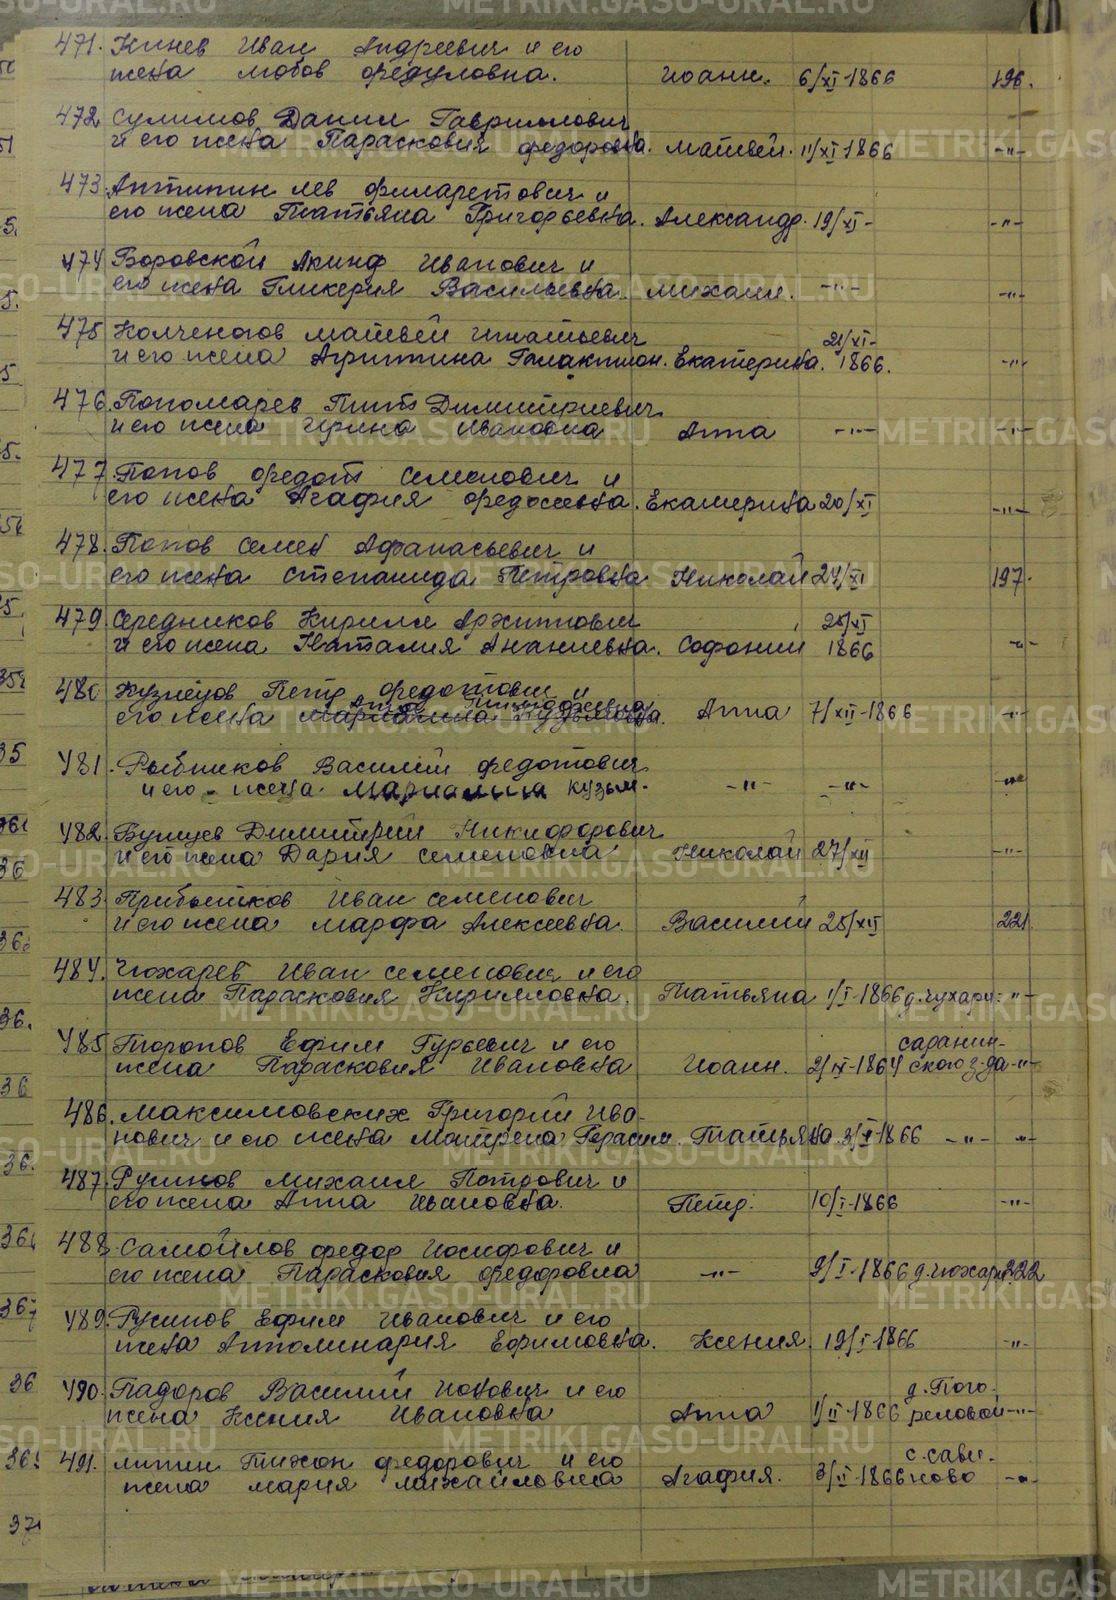 471. Кинев Иван Андреевич и его
жена Любов Федуловна. Иоанн. 6/XI-1866 196.
472. Сулимов Данил Гаврилович
и его жена Параскович Федоровна. Матвей. 11/XI-1866 -"-
473. Антипин Лев Филаретович и
его жена Татьяна Григорьевна. Александр. 19/XI- -"-
474 Боровской Акинф Иванович и
его жена Гликерия Васильевна. Михаил. -"- -"-
475 Колченогов Матвей Игнатьевич 21/XI-
и его жена Агриппина Галактион. Екатерина. 1866. -"-
476. Пономарев Тит Димитриевич
и его жена Ирина Ивановна Анна -"- -"-
477. Попов Федот Семенович и
его жена Агафия Федосеевна. Екатерина 20/XI -"-
478. Попов Семен Афанасьевич и
его жена Степанида Петровна Николай 24/XI 197.
479. Середников Кирилл Архиппович 25/XI
и его жена Наталия Ананиевна. Софоний 1866 -"-
480 Кузнецов Петр Федотович и
его жена Анна 7/XII-1866 -"-
481. Рыбников Василий Федотович
и его - жена Мариамна Кузьм. -"- -"- -"-
482. Димитрий Никифорович
и его жена Дария Семеновна Николай 27/XII -"-
483. Прибытков Иван Семенович
и его жена Марфа Алексеевна. Василий 25/XII 221
484. Чюхарев Иван Семенович и его
жена Параскович Кирилловна. Татьяна 1/I-1866 д. Чухари: -"-
485 Торопов Ефим Гурьевич и его саранин-
жена Парасковия Ивановна Иоанн. 2/IX-1864 ского з-да -"-
486. Максимовских Григорий Ива-
нович и его жена Матрена Герасим. Татьяна. 3/I-1866 -"- -"-
487. Русинов Михаил Петрович и
его жена Анна Ивановна. Петр. 10/I-1866 -"-
488. Самойлов Федор Иосифович и
его жена Парасковия Федоровна -"- 9/I-1866 д. Чюхари 222
489. Русинов Ефим Иванович и его
жена Апполинария Ефимовна. Ксения. 19/I-1866 -"-
490. Падоров Василий Иовович и его д. Пого-
жена Ксения Ивановна Анна 1/II-1866 реловой -"-
491. Липин Тихон Федорович и его с. Сави-
жена Мария Михайловна Агафия. 3/II-1866 ново -"-
METRIKI.GASO-URAL.RU